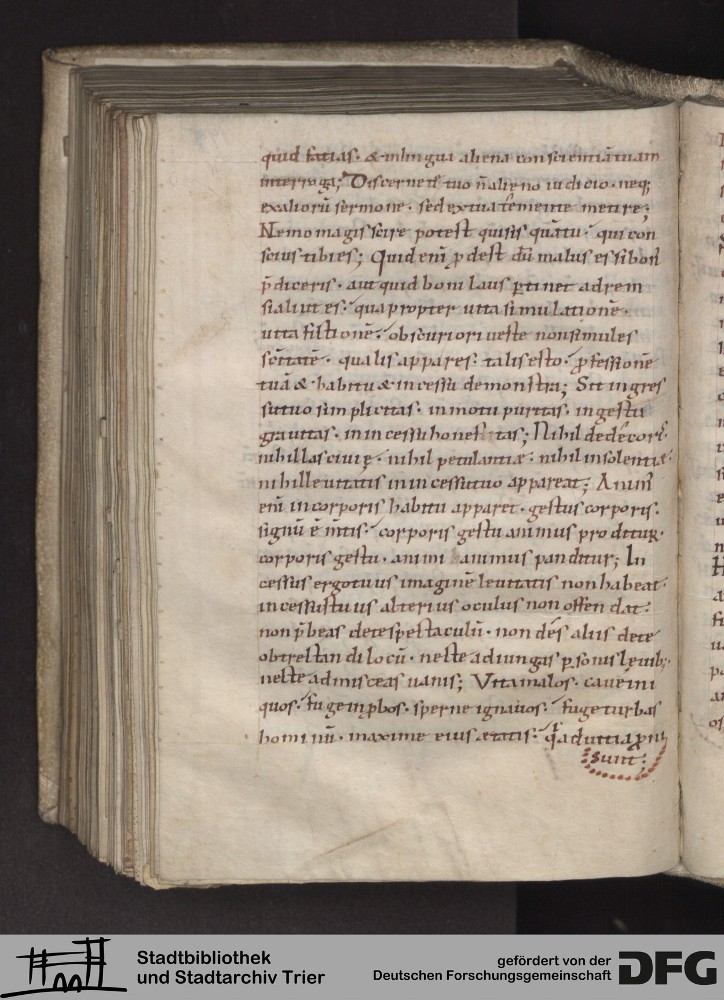 quid facias. & in lingua aliena conscientiā tuam
interroga; Discerne te tuo n̄ alieno iudicio. neq;
ex aliorū sermone. sed ex tua te mente metire;
Nemo magis scire potest quis sis quātu. qui con
scius tibi es; Quid enī ꝓdest dū malus es si bon
p̄diceris. aut quid boni laus ꝑtinet ad rem
si aliut es. qua propter uita simulationē.
uita fictionē. obscuriori ueste non simules
sc̄itatē. qualis appares. talis esto. ꝓfessionē
tuā & habitu & incessu demonstra; Sit in gres
su tuo simplicitas. in motu puritas. in gestu
grauitas. in incessu honestas; Nihil dedecoris.
nihil lasciuię. nihil petulantiæ. nihil insolentiæ.
nihil leuitatis in incessu tuo appareat; Animꝰ
enī in corporis habitu apparet. gestus corporis.
signū ē m̄tis. corporis gestu animus proditur.
corporis gestu. animi animus panditur; In
cessus ergo tuus imaginē leuitatis non habeat.
incessus tuus alterius oculus non offendat.
non p̄beas de te spectaculū. non des aliis de te
obtrectandi locū. ne te adiungas ꝑsonis leuib;
ne te admisceas uanis; Vita malos. caue ini
quos. fuge inꝓbos. sperne ignauos. fuge turbas
hominū. maxime eius ætatis. q̄ ad uitia ꝓni
sunt;
Stadtbibliothek
und Stadtarchiv Trier
gefördert von der
Deutschen Forschungsgemeinschaft
DFG